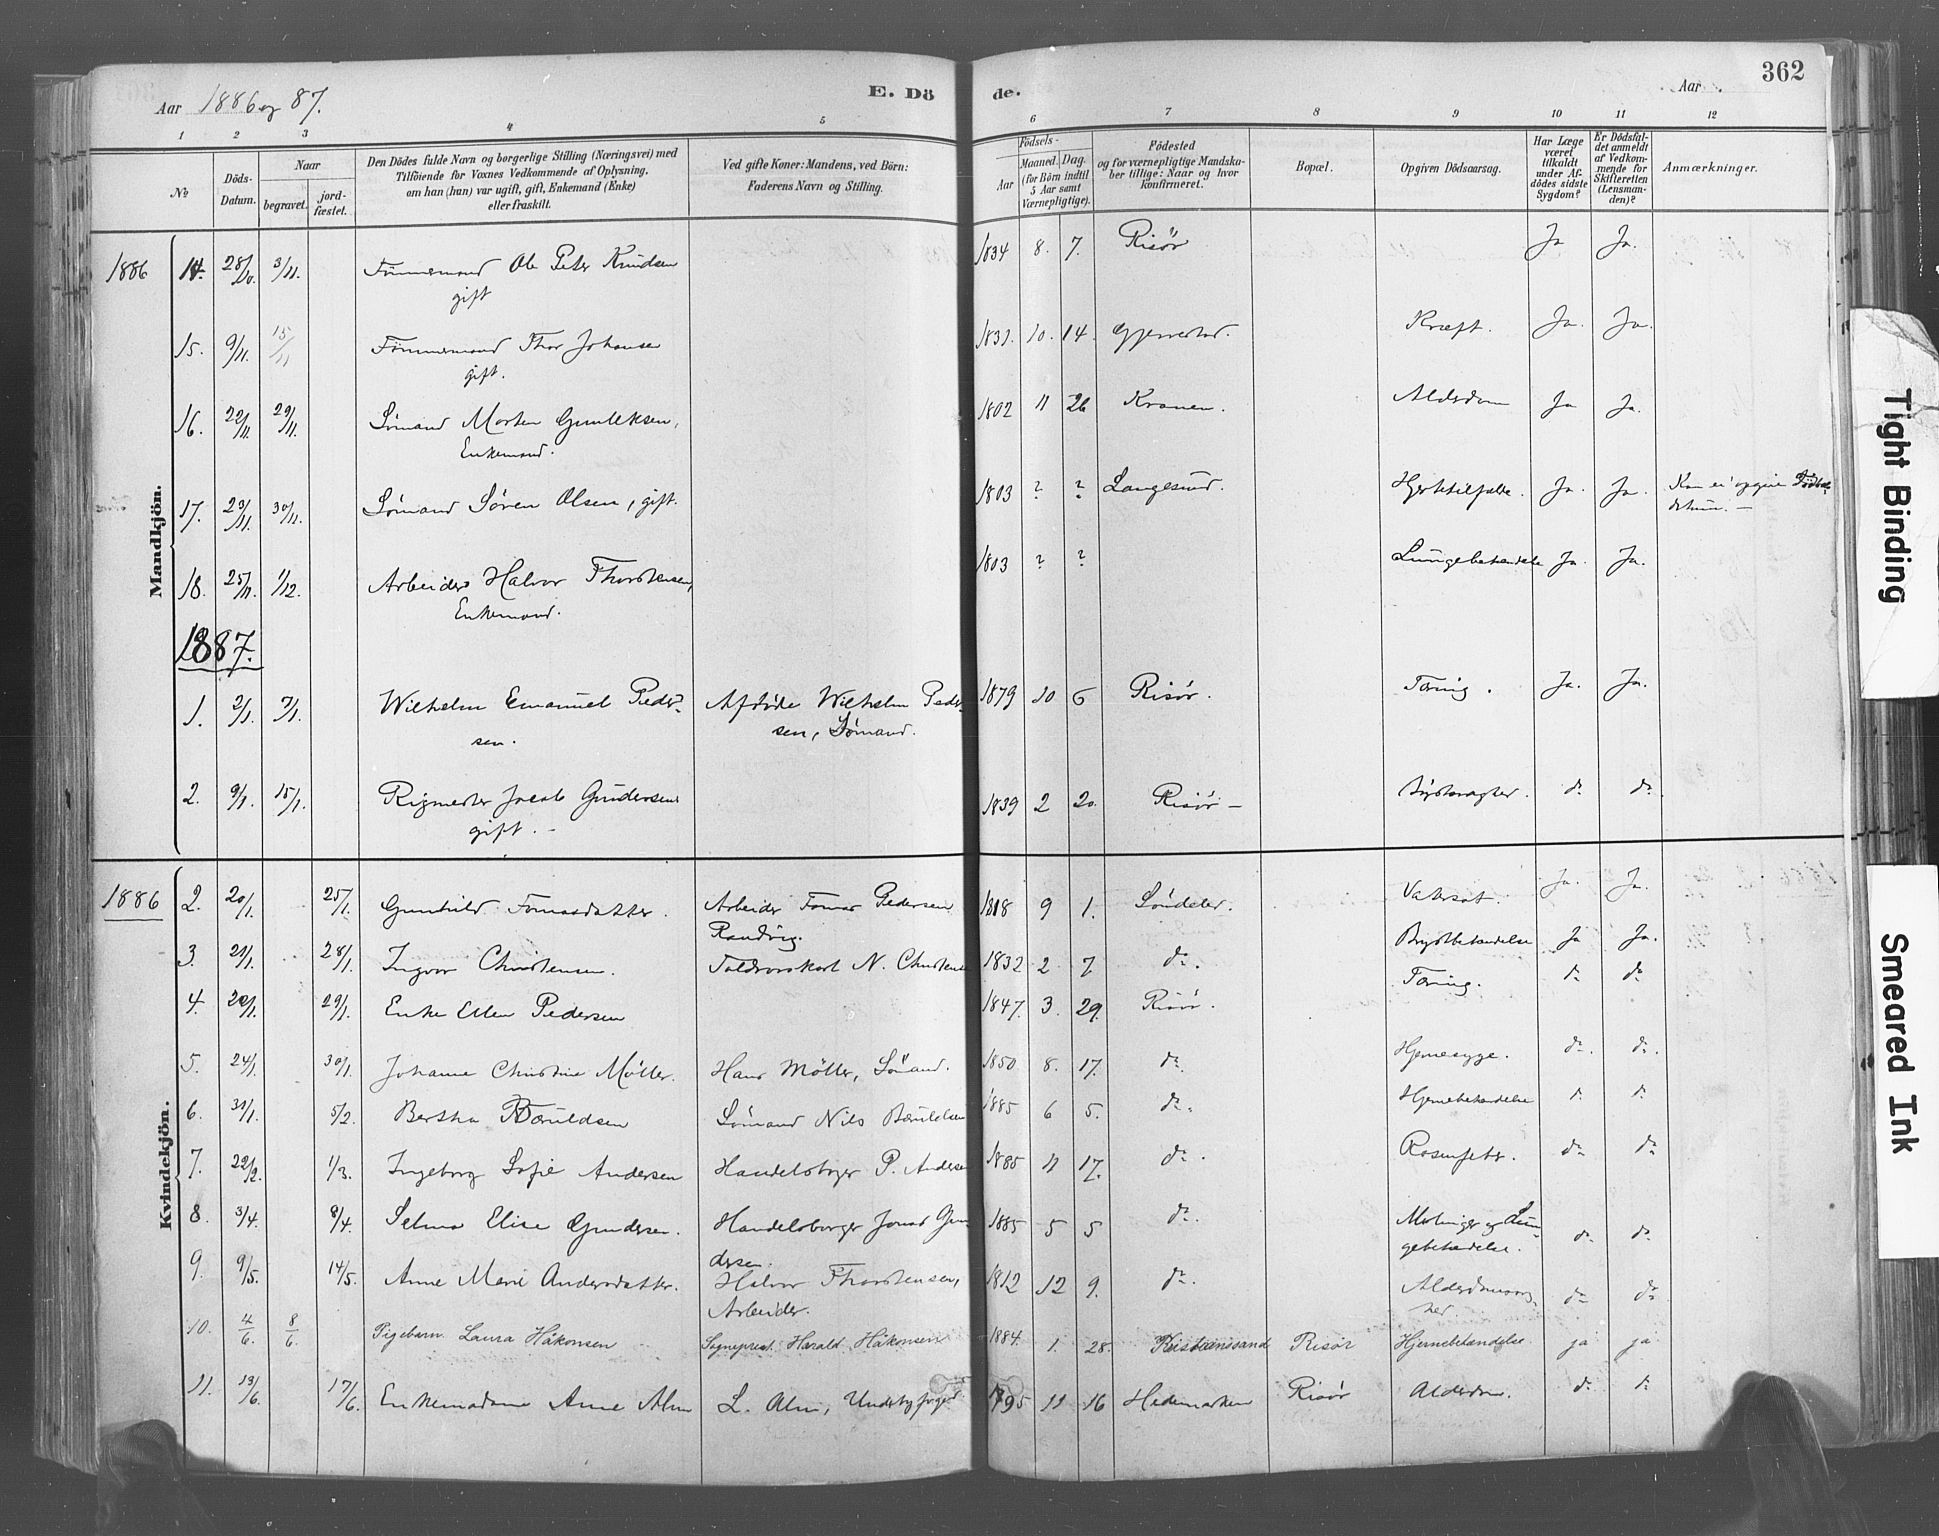 362
Aar 1886 og 87.
E. Dö
de.
Aar
1 2 3 4 5 6 7 8 9 10 11 12
№
Döds-Datum.
Naar
begravet.
jord-fæstet.
Den Dödes fulde Navn og borgerlige Stilling (Næringsvei) med
Tilföiende for Voxnes Vedkommende af Oplysning,
om han (hun) var ugift, gift, Enkemand (Enke)
eller fraskilt.
Ved gifte Koner: Mandens, ved Börn:
Faderens Navn og Stilling.
Födsels-
Aar
Maaned. Dag.
(for Börn indtil
5 Aar samt
Værnepligtige).
Födested
og for værnepligtige Mandska-
ber tillige: Naar og hvor
konfirmeret.
Bopæl.
Opgiven Dödsaarsag.
Har Læge
været
tilkaldt
under Af-
dödes sidste
Sygdom?
Er Dödsfal-
det anmeldt
af Vedkom-
mende for
Skifteretten
(Lensman-
den)?
Anmærkninger.
Mandkjön.
1886 14. 28/10. 3/11. Tömmermand Ole Peter Knudsen 1834 8. 7. Risör Ja Ja.
gift
15. 9/11. 15/11 Tömmermand Thor Johansen 1831. 10. 14. Gjerrestad. Kræft. Ja. Ja.
gift.
16. 22/11. 29/11. Sömand Morten Gunleksen, 1802 11 26 Kranen. Alderdom Ja Ja.
Enkemand.
17. 23/11. 30/11. Sömand Sören Olsen, gift. 1803 ? ? Langesund. Hjertetilfælde. Ja. Ja. Kan ei opgive Födsels-
datum. —
18. 25/11. 1/12. Arbeider Halvor Thorstensen, 1803 ? ? Lungebetændelse Ja. Ja.
Enkemand.
1887.
1. 2/1. 7/1. Wilhelm Emanuel Peder- Afdöde Wilhelm Peder- 1879 10 6 Risör. Tæring. Ja. Ja.
sen. sen, Sömand.
2. 9/1. 15/1. Rigmester Jacob Gundersen 1839 2 20. Risör — do do
gift. —
Kvindekjön.
1886 2. 20/1. 25/1. Gunhild Tomasdatter. Arbeider Tomas Pedersen 1818 9 1. Söndeled. Vatersot. Ja. Ja.
Randvig.
3. 21/1. 28/1. Ingvor Christensen. N. Christensen 1832 2 7. do. Brystbetændelse Ja Ja.
4. 20/1. 29/1. Enke Ellen Pedersen 1847. 3. 29. Risör. Tæring. do do
5. 24/1. 30/1. Johanne Christine Möller. Hans Möller, Sömand. 1850 8. 17. do. Hjernesyge. do. do.
6. 31/1. 5/2. Bertha Bæruldsen Sömand Nils Bæruldsen 1885 6 5. do. Hjernebetændelse do do
7. 22/2. 1/3. Ingeborg Sofie Andersen Handelsborger P. Andersen 1885 11 17. do. Rosenfeber. do do
8. 3/4. 8/4. Selma Elise Gundersen. Handelsborger Jonas Gun 1885 5 5 do. Meslinger og Lun-
dersen. gebetændelse. do. do.
9. 9/5. 14/5. Anne Marie Andersdatter. Halvor Thorstensen, 1812 12 9. do. do do
Arbeider.
10. 4/6. 8/6. Pigebarn Laura Håkonsen Sognepræst Harald Håkonsen 1884. 1. 28. Kristianssand Risör Hjernebetændelse ja ja
11. 13/6. 17/6. Enkemadame Anne Alm L. Alm, Underbyfoged 1795 11 16 Hedemarken Risör Alderdom. do do
Tight Binding
Smeared Ink